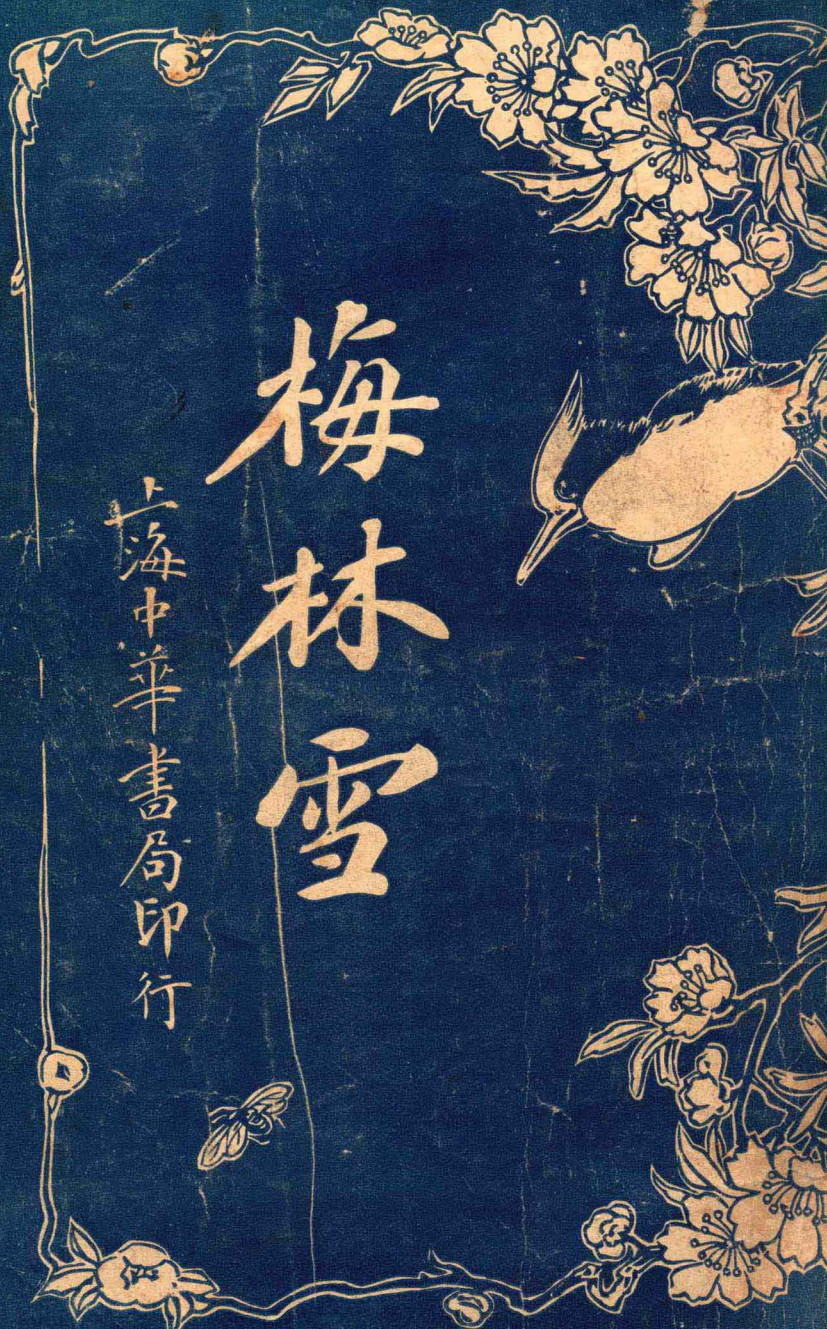 梅林雪
上海中華書局印行